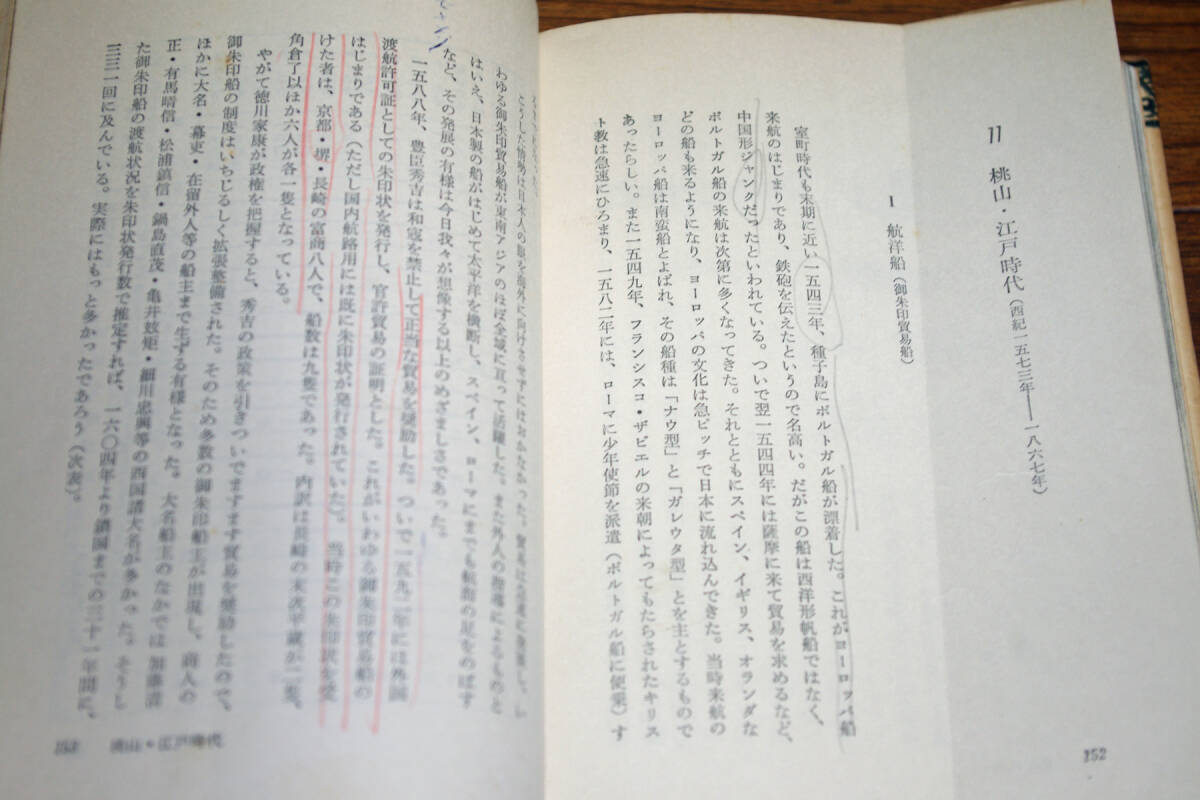 11 桃山・江戸時代（西紀一五七三年——一八六七年）
1 航洋船（御朱印貿易船）
室町時代も末期に近い一五四三年、種子島にポルトガル船が漂着した。これがヨーロッパ船
来航のはじまりであり、鉄砲を伝えたというので名高い。だがこの船は西洋形帆船ではなく、
中国形ジャンクだったといわれている。ついで翌一五四四年には薩摩に来て貿易を求めるなど、
ポルトガル船の来航は次第に多くなってきた。それとともにスペイン、イギリス、オランダな
どの船も来るようになり、ヨーロッパの文化は急ピッチで日本に流れ込んできた。当時来航の
ヨーロッパ船は南蛮船とよばれ、その船種は「ナウ型」と「ガレウタ型」とを主とするもので
あったらしい。また一五四九年、フランシスコ・ザビエルの来朝によってもたらされたキリス
ト教は急速にひろまり、一五八二年には、ローマに少年使節を派遣（ポルトガル船に便乗）す
152
こうした情勢は日本人の眼を海外に向けさせずにはおかなかった。貿易は急速に発展し、い
わゆる御朱印貿易船が東南アジアのほぼ全域に亘って活躍した。また外人の指導によるものと
はいえ、日本製の船がはじめて太平洋を横断し、スペイン、ローマにまでも航海の足をのばす
など、その発展の有様は今日我々が想像する以上のめざましさであった。
一五八八年、豊臣秀吉は和寇を禁止して正当な貿易を奨励した。ついで一五九二年には外国
渡航許可証としての朱印状を発行し、官許貿易の証明とした。これがいわゆる御朱印貿易船の
はじまりである（ただし国内航路用には既に朱印状が発行されていた）。当時この朱印状を受
けた者は、京都・堺・長崎の富商八人で、船数は九隻であった。内訳は長崎の末次平蔵が二隻、
角倉了以ほか六人が各一隻となっている。
やがて徳川家康が政権を把握すると、秀吉の政策を引きついでますます貿易を奨励したので、
御朱印船の制度はいちじるしく拡張整備された。そのため多数の御朱印船主が出現し、商人の
ほかに大名・幕吏・在留外人等の船主まで生ずる有様となった。大名船主のなかでは加藤清
正・有馬晴信・松浦鎮信・鍋島直茂・亀井玆矩・細川忠興等の西国諸大名が多かった。そうし
た御朱印船の渡航状況を朱印状発行数で推定すれば、一六〇四年より鎖国までの三十一年間に、
三三一回に及んでいる。実際にはもっと多かったであろう（次表）。
153 桃山・江戸時代